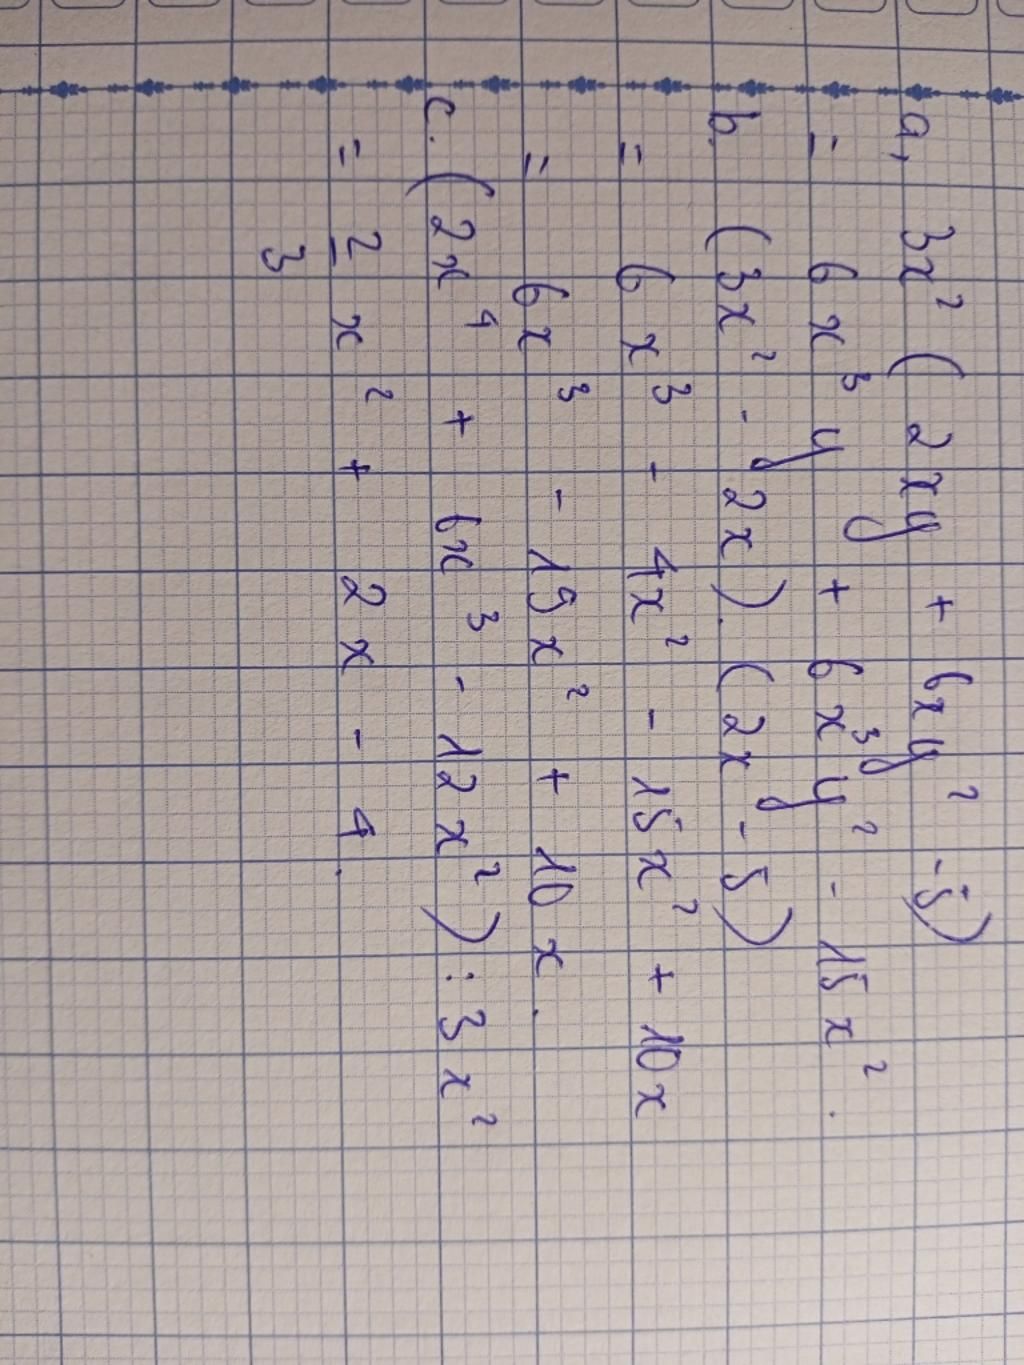 a, 3x² (2xy + 6xy² - 5)
= 6x³y + 6x³y² - 15x².
b. (3x² - 2x). (2x - 5)
= 6x³ - 4x² - 15x² + 10x
= 6x³ - 19x² + 10x.
c. (2x⁴ + 6x³ - 12x²) : 3x²
= 2/3 x² + 2x - 4.